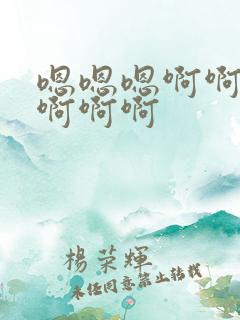 嗯嗯嗯啊啊
啊啊啊
楊荣輝
未经同意禁止转载